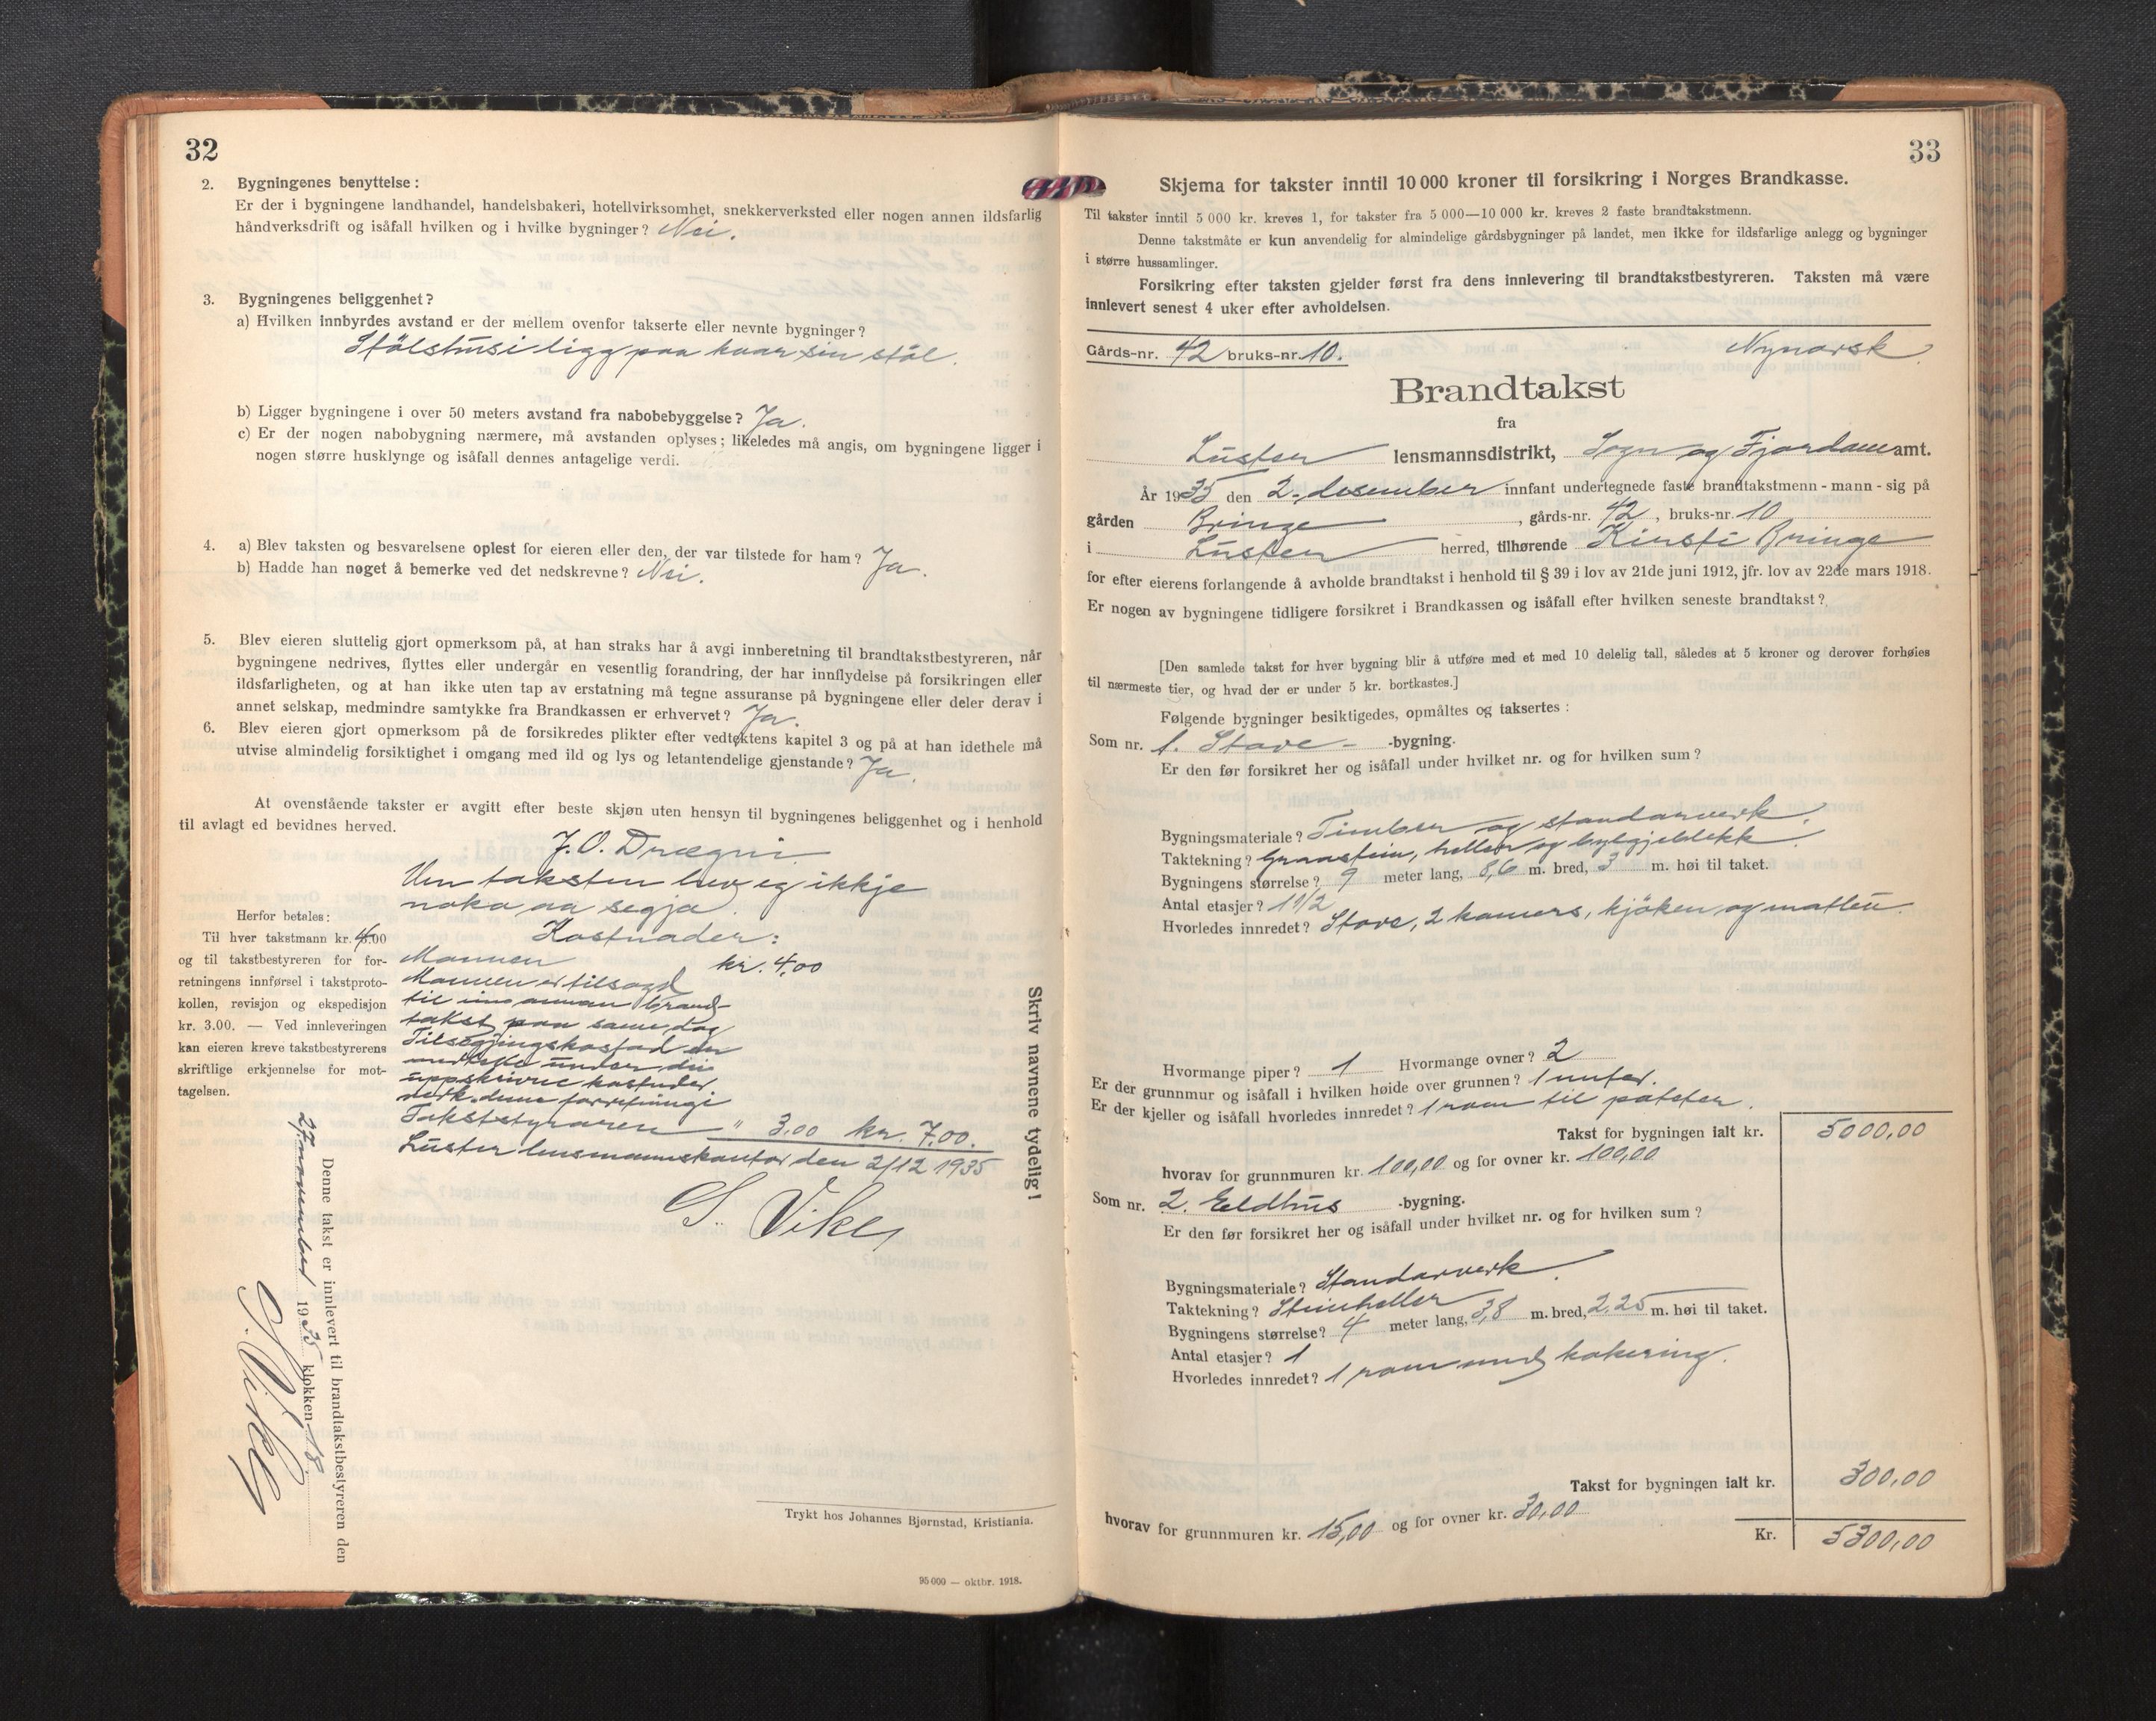 32
2. Bygningenes benyttelse:
Er der i bygningene landhandel, handelsbakeri, hotellvirksomhet, snekkerverksted eller nogen annen ildsfarlig
håndverksdrift og isåfall hvilken og i hvilke bygninger? Nei.
3. Bygningenes beliggenhet?
a) Hvilken innbyrdes avstand er der mellem ovenfor takserte eller nevnte bygninger?
Stölshusi ligg paa kvar sin stöl.
b) Ligger bygningene i over 50 meters avstand fra nabobebyggelse? Ja.
c) Er der nogen nabobygning nærmere, må avstanden oplyses; likeledes må angis, om bygningene ligger i
nogen større husklynge og isåfall dennes antagelige verdi.
4. a) Blev taksten og besvarelsene oplest for eieren eller den, der var tilstede for ham? Ja.
b) Hadde han noget å bemerke ved det nedskrevne? Nei.
5. Blev eieren sluttelig gjort opmerksom på, at han straks har å avgi innberetning til brandtakstbestyreren, når
bygningene nedrives, flyttes eller undergår en vesentlig forandring, der har innflydelse på forsikringen eller
ildsfarligheten, og at han ikke uten tap av erstatning må tegne assuranse på bygningene eller deler derav i
annet selskap, medmindre samtykke fra Brandkassen er erhvervet? Ja.
6. Blev eieren gjort opmerksom på de forsikredes plikter efter vedtektens kapitel 3 og på at han idethele må
utvise almindelig forsiktighet i omgang med ild og lys og letantendelige gjenstande? Ja.
At ovenstående takster er avgitt efter beste skjøn uten hensyn til bygningenes beliggenhet og i henhold
til avlagt ed bevidnes herved.
J. O. Drægni.
Um taksten hev eg ikkje
noko aa segja.
Kostnader:
Mannen kr. 4,00
Mannen er tilsagd
til ein annan brand-
takst paa same dag
Tilsegjingskostnad er
medteke under din
uppskrivne kostnader
vedk. denne forretningi
Takststyraren " 3.00 kr. 7.00.
Luster lensmannskontor den 2/12 1935
S. Vike
Herfor betales:
Til hver takstmann kr. 4.00
og til takstbestyreren for for-
retningens innførsel i takstproto-
kollen, revisjon og ekspedisjon
kr. 3.00. — Ved innleveringen
kan eieren kreve takstbestyrerens
skriftlige erkjennelse for mot-
tagelsen.
Skriv navnene tydelig!
Denne takst er innlevert til brandtakstbestyreren den
27 november 1935 klokken 18.
S. Vike
Trykt hos Johannes Bjørnstad, Kristiania.
95 000 — oktbr. 1918.
33
Skjema for takster inntil 10 000 kroner til forsikring i Norges Brandkasse.
Til takster inntil 5 000 kr. kreves 1, for takster fra 5 000—10 000 kr. kreves 2 faste brandtakstmenn.
Denne takstmåte er kun anvendelig for almindelige gårdsbygninger på landet, men ikke for ildsfarlige anlegg og bygninger
i større hussamlinger.
Forsikring efter taksten gjelder først fra dens innlevering til brandtakstbestyreren. Taksten må være
innlevert senest 4 uker efter avholdelsen.
Gårds-nr. 42 bruks-nr. 10. Nynorsk.
Brandtakst
fra
Luster lensmannsdistrikt, Sogn og Fjordane amt.
År 1935 den 2. desember innfant undertegnede faste brandtakstmenn - mann - sig på
gården Bringe, gårds-nr. 42, bruks-nr. 10
i Luster herred, tilhørende Kirsti Bringe
for efter eierens forlangende å avholde brandtakst i henhold til § 39 i lov av 21de juni 1912, jfr. lov av 22de mars 1918.
Er nogen av bygningene tidligere forsikret i Brandkassen og isåfall efter hvilken seneste brandtakst?
[Den samlede takst for hver bygning blir å utføre med et med 10 delelig tall, således at 5 kroner og derover forhøies
til nærmeste tier, og hvad der er under 5 kr. bortkastes.]
Følgende bygninger besiktigedes, opmåltes og taksertes:
Som nr. 1. Stove- -bygning.
Er den før forsikret her og isåfall under hvilket nr. og for hvilken sum?
Bygningsmateriale? Timber og standarverk.
Taktekning? Graastein, heller og bylgjeblekk.
Bygningens størrelse? 9 meter lang, 8,6 m. bred, 3 m. høi til taket.
Antal etasjer? 1 1/2
Hvorledes innredet? Stove, 2 kamers, kjöken og matbu.
Hvormange piper? 1 Hvormange ovner? 2
Er der grunnmur og isåfall i hvilken høide over grunnen? 1 meter.
Er der kjeller og isåfall hvorledes innredet? 1 rom til poteter.
Takst for bygningen ialt kr. 5000,00
hvorav for grunnmuren kr. 100,00 og for ovner kr. 100,00
Som nr. 2. Eldhus -bygning.
Er den før forsikret her og isåfall under hvilket nr. og for hvilken sum?
Bygningsmateriale? Standarverk.
Taktekning? Steinheller
Bygningens størrelse? 4 meter lang, 3,8 m. bred, 2,25 m. høi til taket.
Antal etasjer? 1
Hvorledes innredet? 1 rom med kokering.
Takst for bygningen ialt kr. 300,00
hvorav for grunnmuren kr. 15,00 og for ovner kr. 30,00
Kr. 5300,00